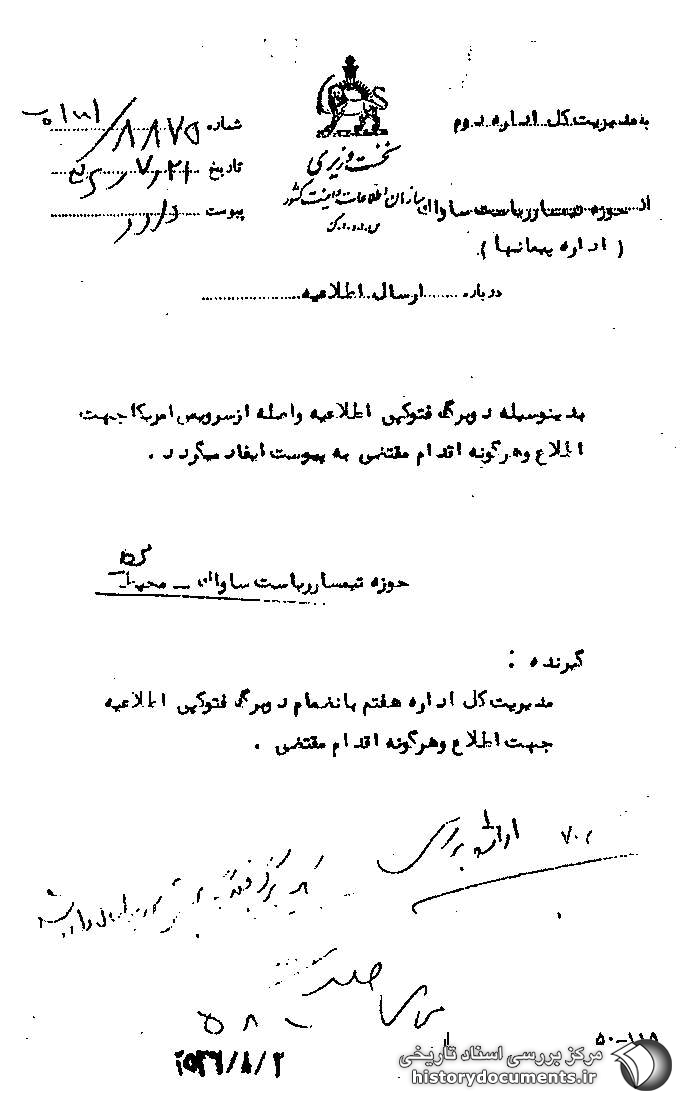 به مدیریت کل اداره دوم
شماره ۸۸۷۵/
نخست وزیری
تاریخ
سازمان اطلاعات و امنیت کشور
س.ا.و.ا.ک
از حوزه تیمسار ریاست ساواک
پیوست دارد
( اداره پیمانها )
درباره ارسال اطلاعیه
بدینوسیله دوبرگ فتوکپی اطلاعیه واصله ازسرویس امریکا جهت
اطلاع وهرگونه اقدام مقتضی به پیوست ایفاد میگردد .
حوزه تیمسار ریاست ساواک –
گیرنده :
مدیریت کل اداره هفتم بانضمام دوبرگ فتوکپی اطلاعیه
جهت اطلاع وهرگونه اقدام مقتضی .
۷۰۲
بررسی
۲۵۳۶/۸/۲
۵۰-۱۱۹
مرکز بررسی اسناد تاریخی
historydocuments.ir